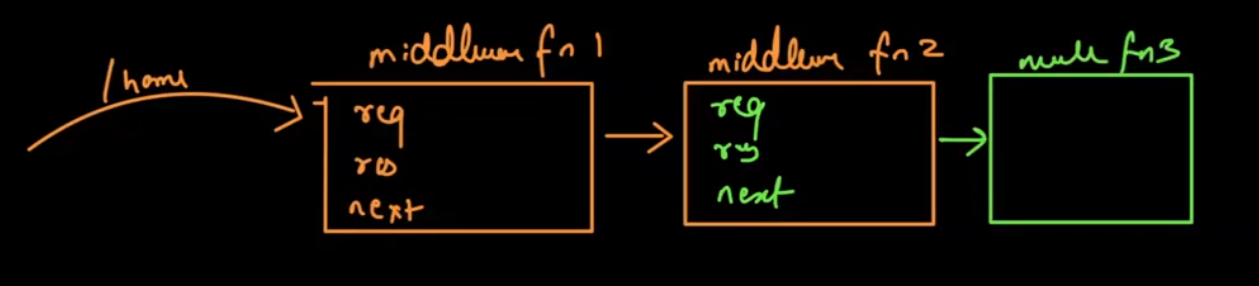 /home
middleware fn 1
req
res
next
middleware fn 2
req
res
next
fn3